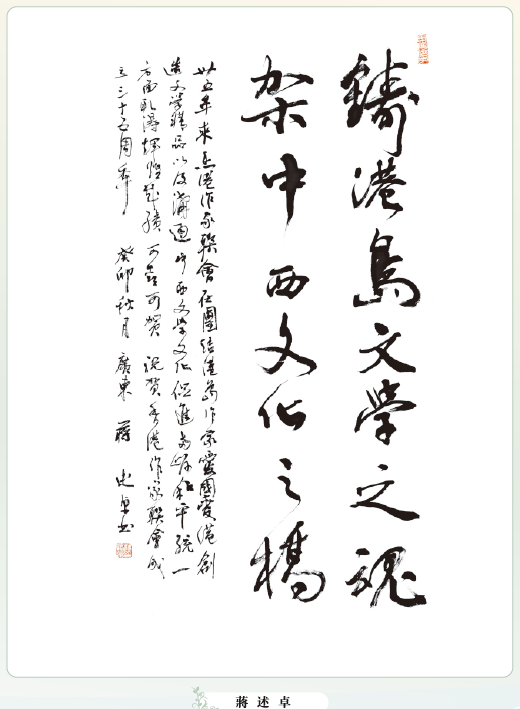 鑄港島文學之魂
架中西文化之橋
卅五年來香港作家聯會在團結港島作家愛國愛港創
造文學精品以及溝通中西文學文化促進兩岸和平統一
方面取得輝煌績 可喜可賀 祝賀香港作家聯會成
立三十五周年 癸卯秋月 廣東 蔣述卓書
蔣述卓